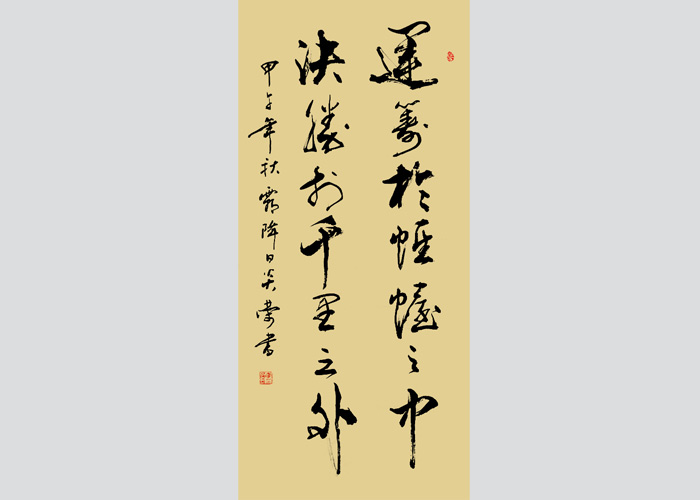 運籌於帷幄之中
決勝於千里之外
甲午年秋霜降日炎榮書